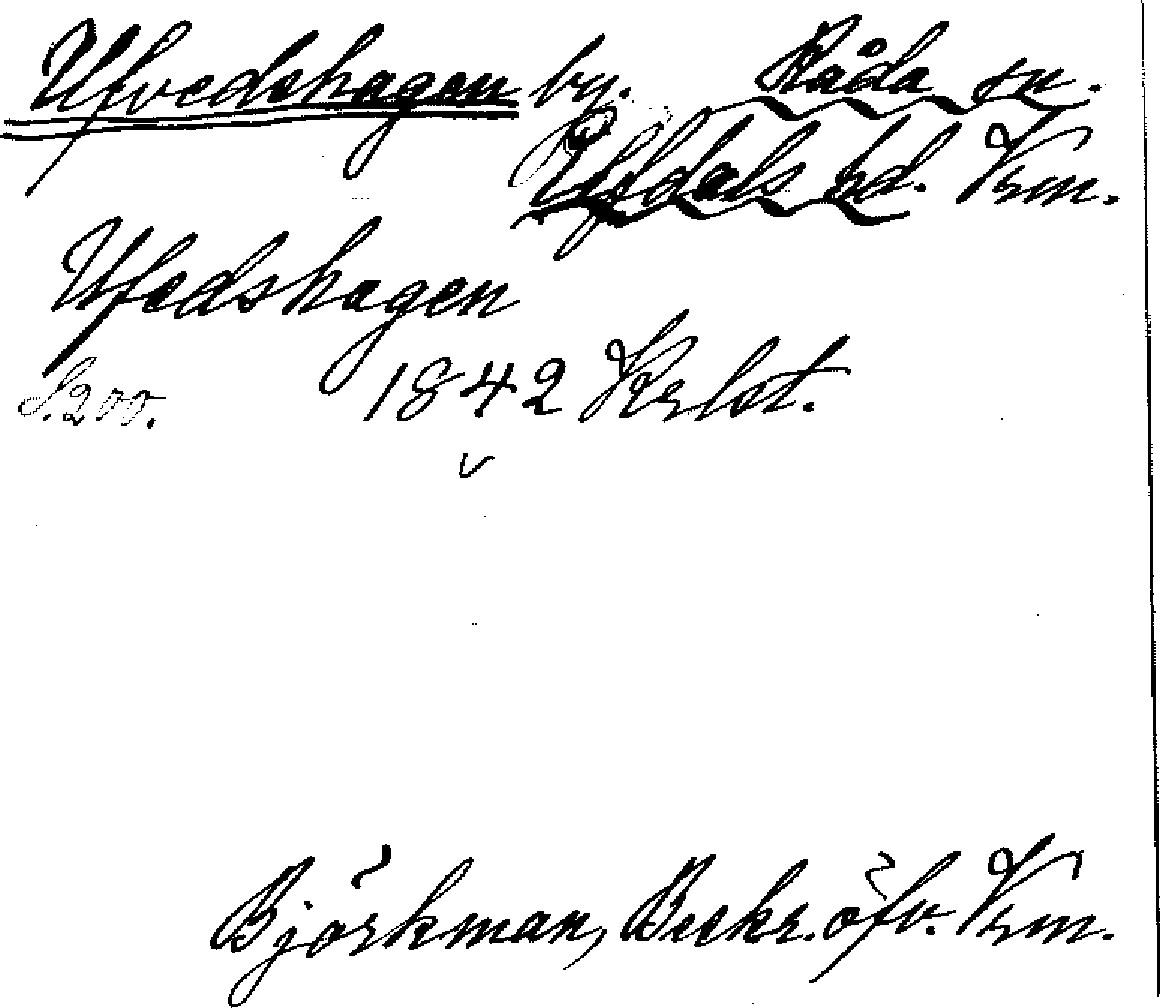 Ufvedshagen by. Råda sn.
Elfdals hd. Vrm.
Ufvedshagen
S. 200. 1842 Krlst.
Björkman, Beskr. öfv. Vrm.